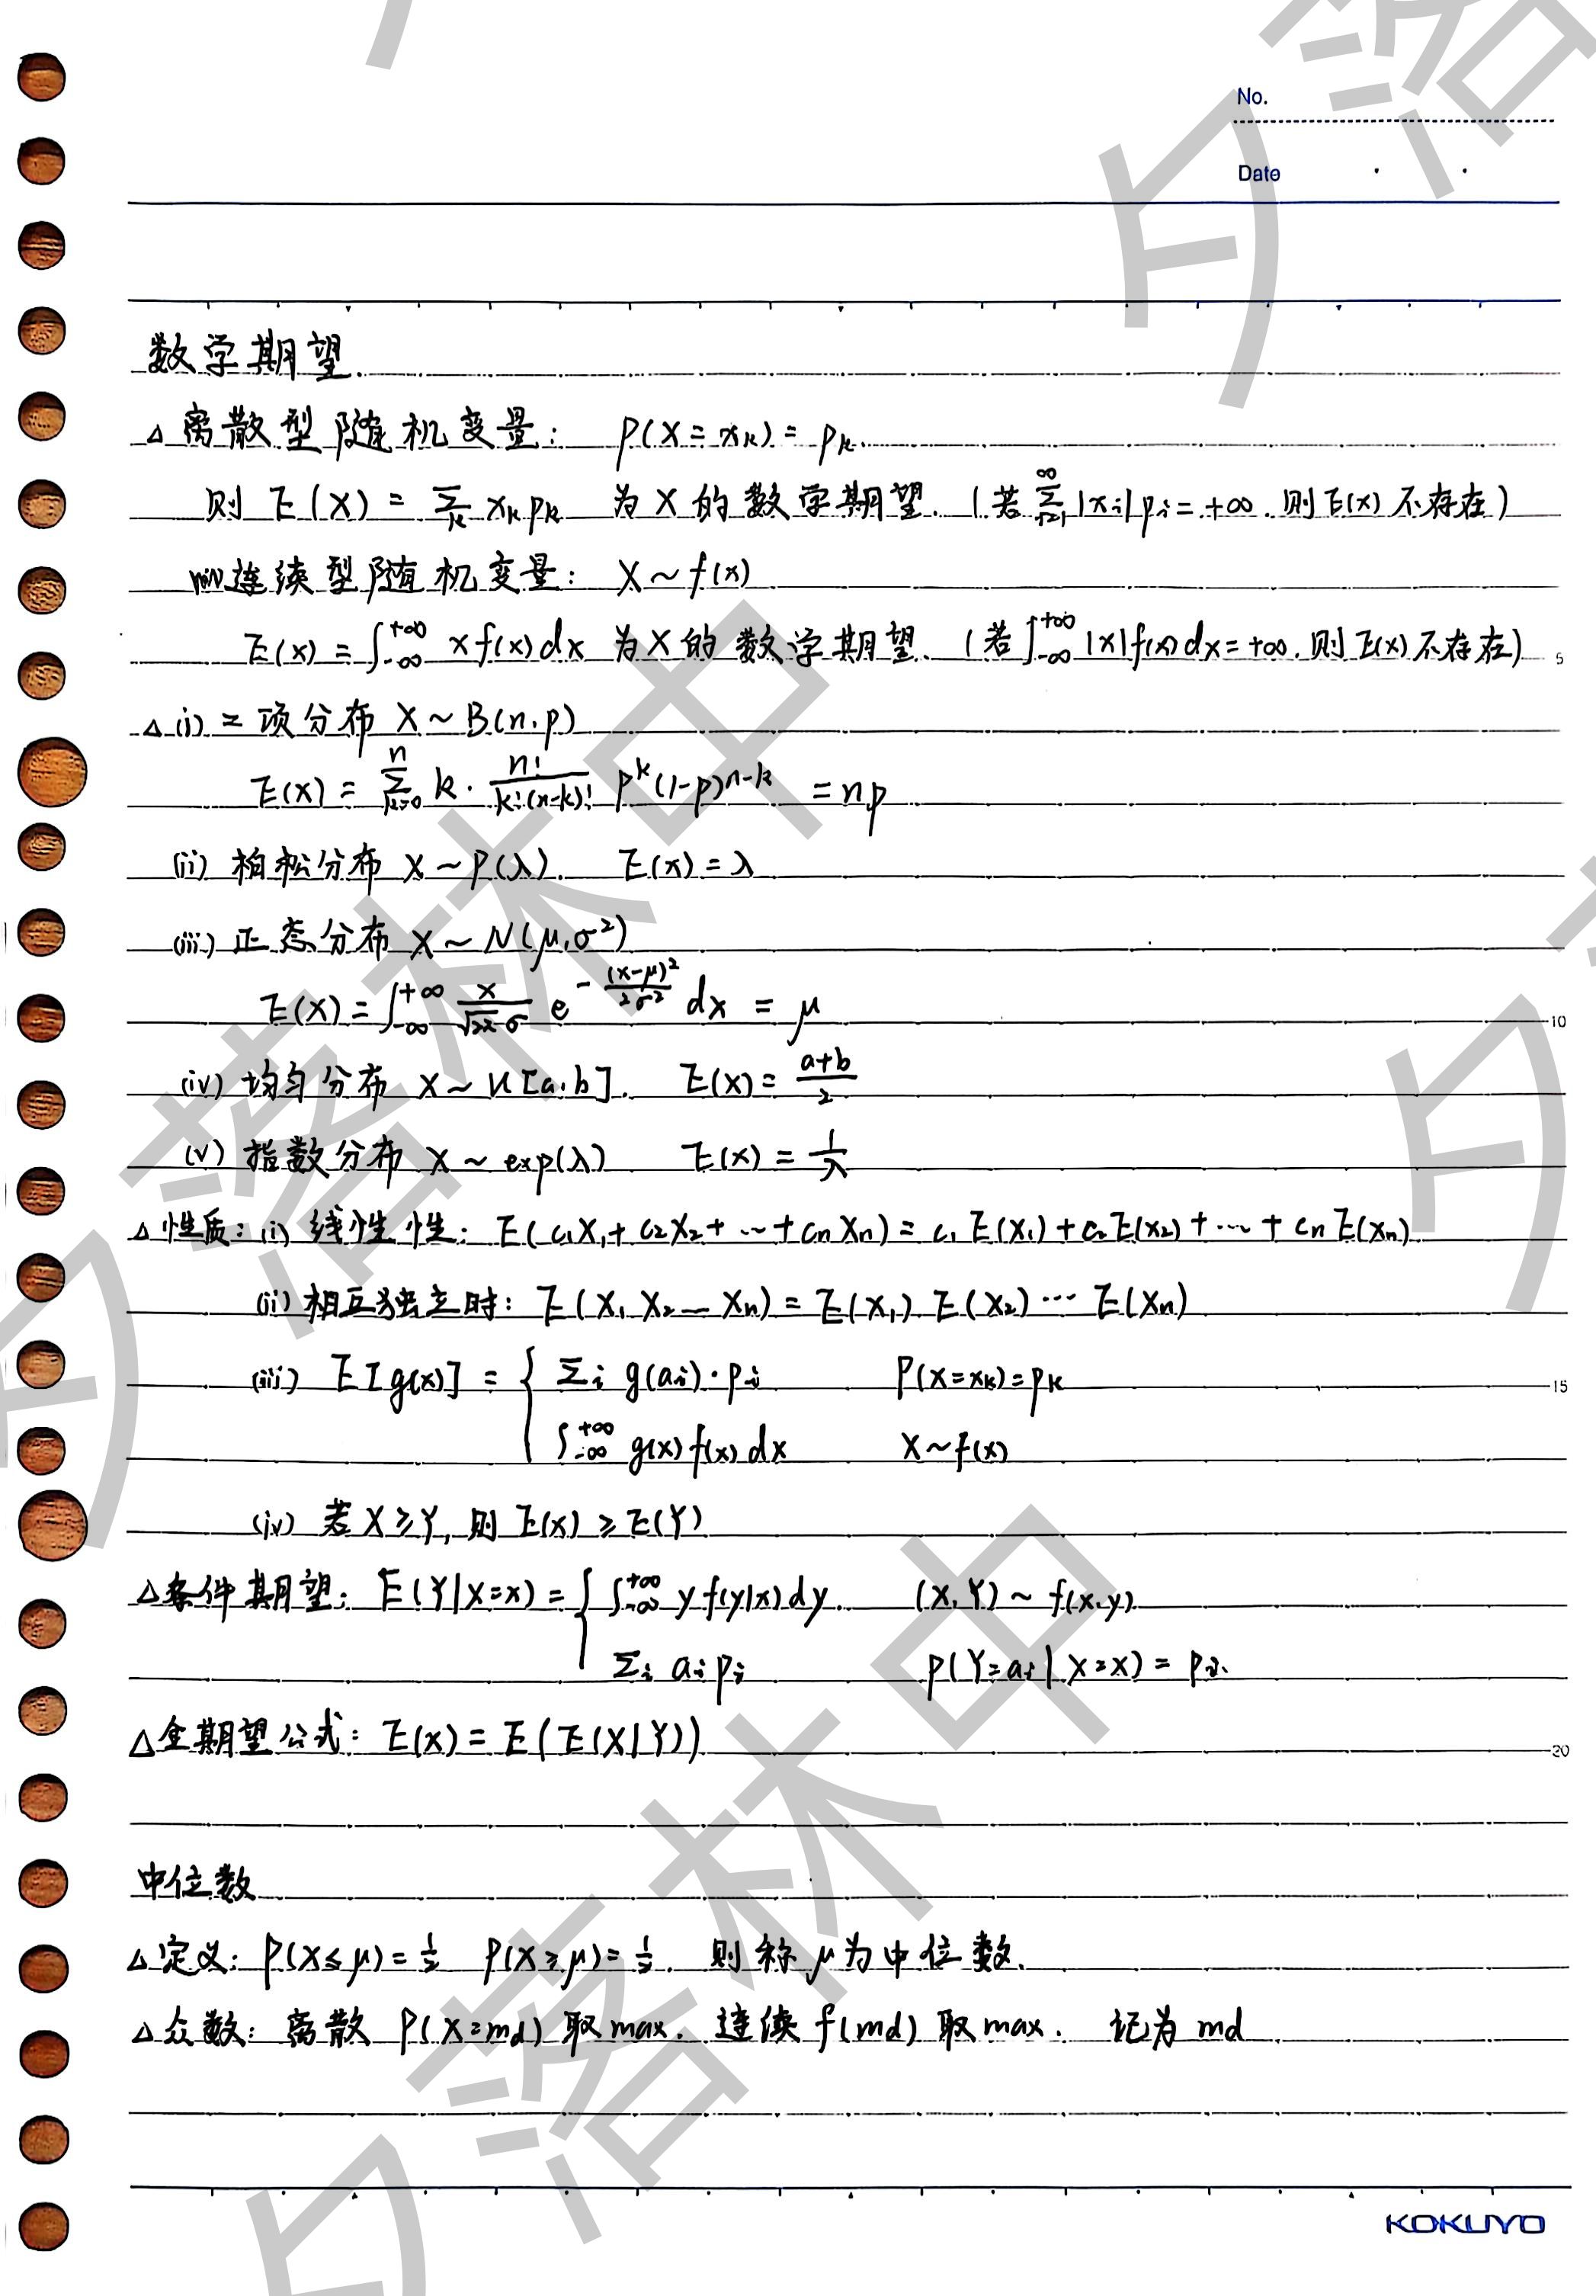 No.
Date
数学期望.
△ 离散型随机变量: P(X=xk)=pk.
则 E(X) = Σk xk pk 为 X 的数学期望. (若 Σ_{i=1}^{∞} |xi| pi = +∞. 则 E(x) 不存在)
连续型随机变量: X~f(x)
E(x) = ∫_{-∞}^{+∞} x f(x) dx 为 X 的数学期望. (若 ∫_{-∞}^{+∞} |x| f(x) dx = +∞. 则 E(x) 不存在)
5
△ (i) 二项分布 X~B(n.p)
E(X) = Σ_{k=0}^{n} k · n!/(k!(n-k)!) p^k (1-p)^{n-k} = np
(ii) 柏松分布 X~P(λ). E(x)=λ
(iii) 正态分布 X~N(μ,σ²)
E(X) = ∫_{-∞}^{+∞} x/(√2π σ) e^{-(x-μ)²/2σ²} dx = μ
10
(iv) 均匀分布 X~U[a.b]. E(X) = (a+b)/2
(v) 指数分布 X~exp(λ) E(x) = 1/λ
△ 性质: (i) 线性性: E(c1X1+c2X2+…+cnXn) = c1E(X1)+c2E(x2)+…+cnE(Xn)
(ii) 相互独立时: E(X1 X2 — Xn) = E(X1) E(X2) … E(Xn)
(iii) E[g(x)] = { Σi g(ai)·pi P(X=xk)=pk
15
∫_{-∞}^{+∞} g(x) f(x) dx X~f(x)
(iv) 若 X≥Y, 则 E(x)≥E(Y)
△ 条件期望: E(Y|X=x) = { ∫_{-∞}^{+∞} y f(y|x) dy. (X,Y)~f(x.y)
Σi ai pi P(Y=ai|X=x) = pi.
△ 全期望公式: E(x) = E(E(X|Y))
20
中位数
△ 定义: P(X≤μ)=1/2 P(X≥μ)=1/2. 则称 μ 为中位数.
△ 众数: 离散 P(X=md) 取 max. 连续 f(md) 取 max. 记为 md
KOKUYO
夕落林中
夕落林中
夕落
夕